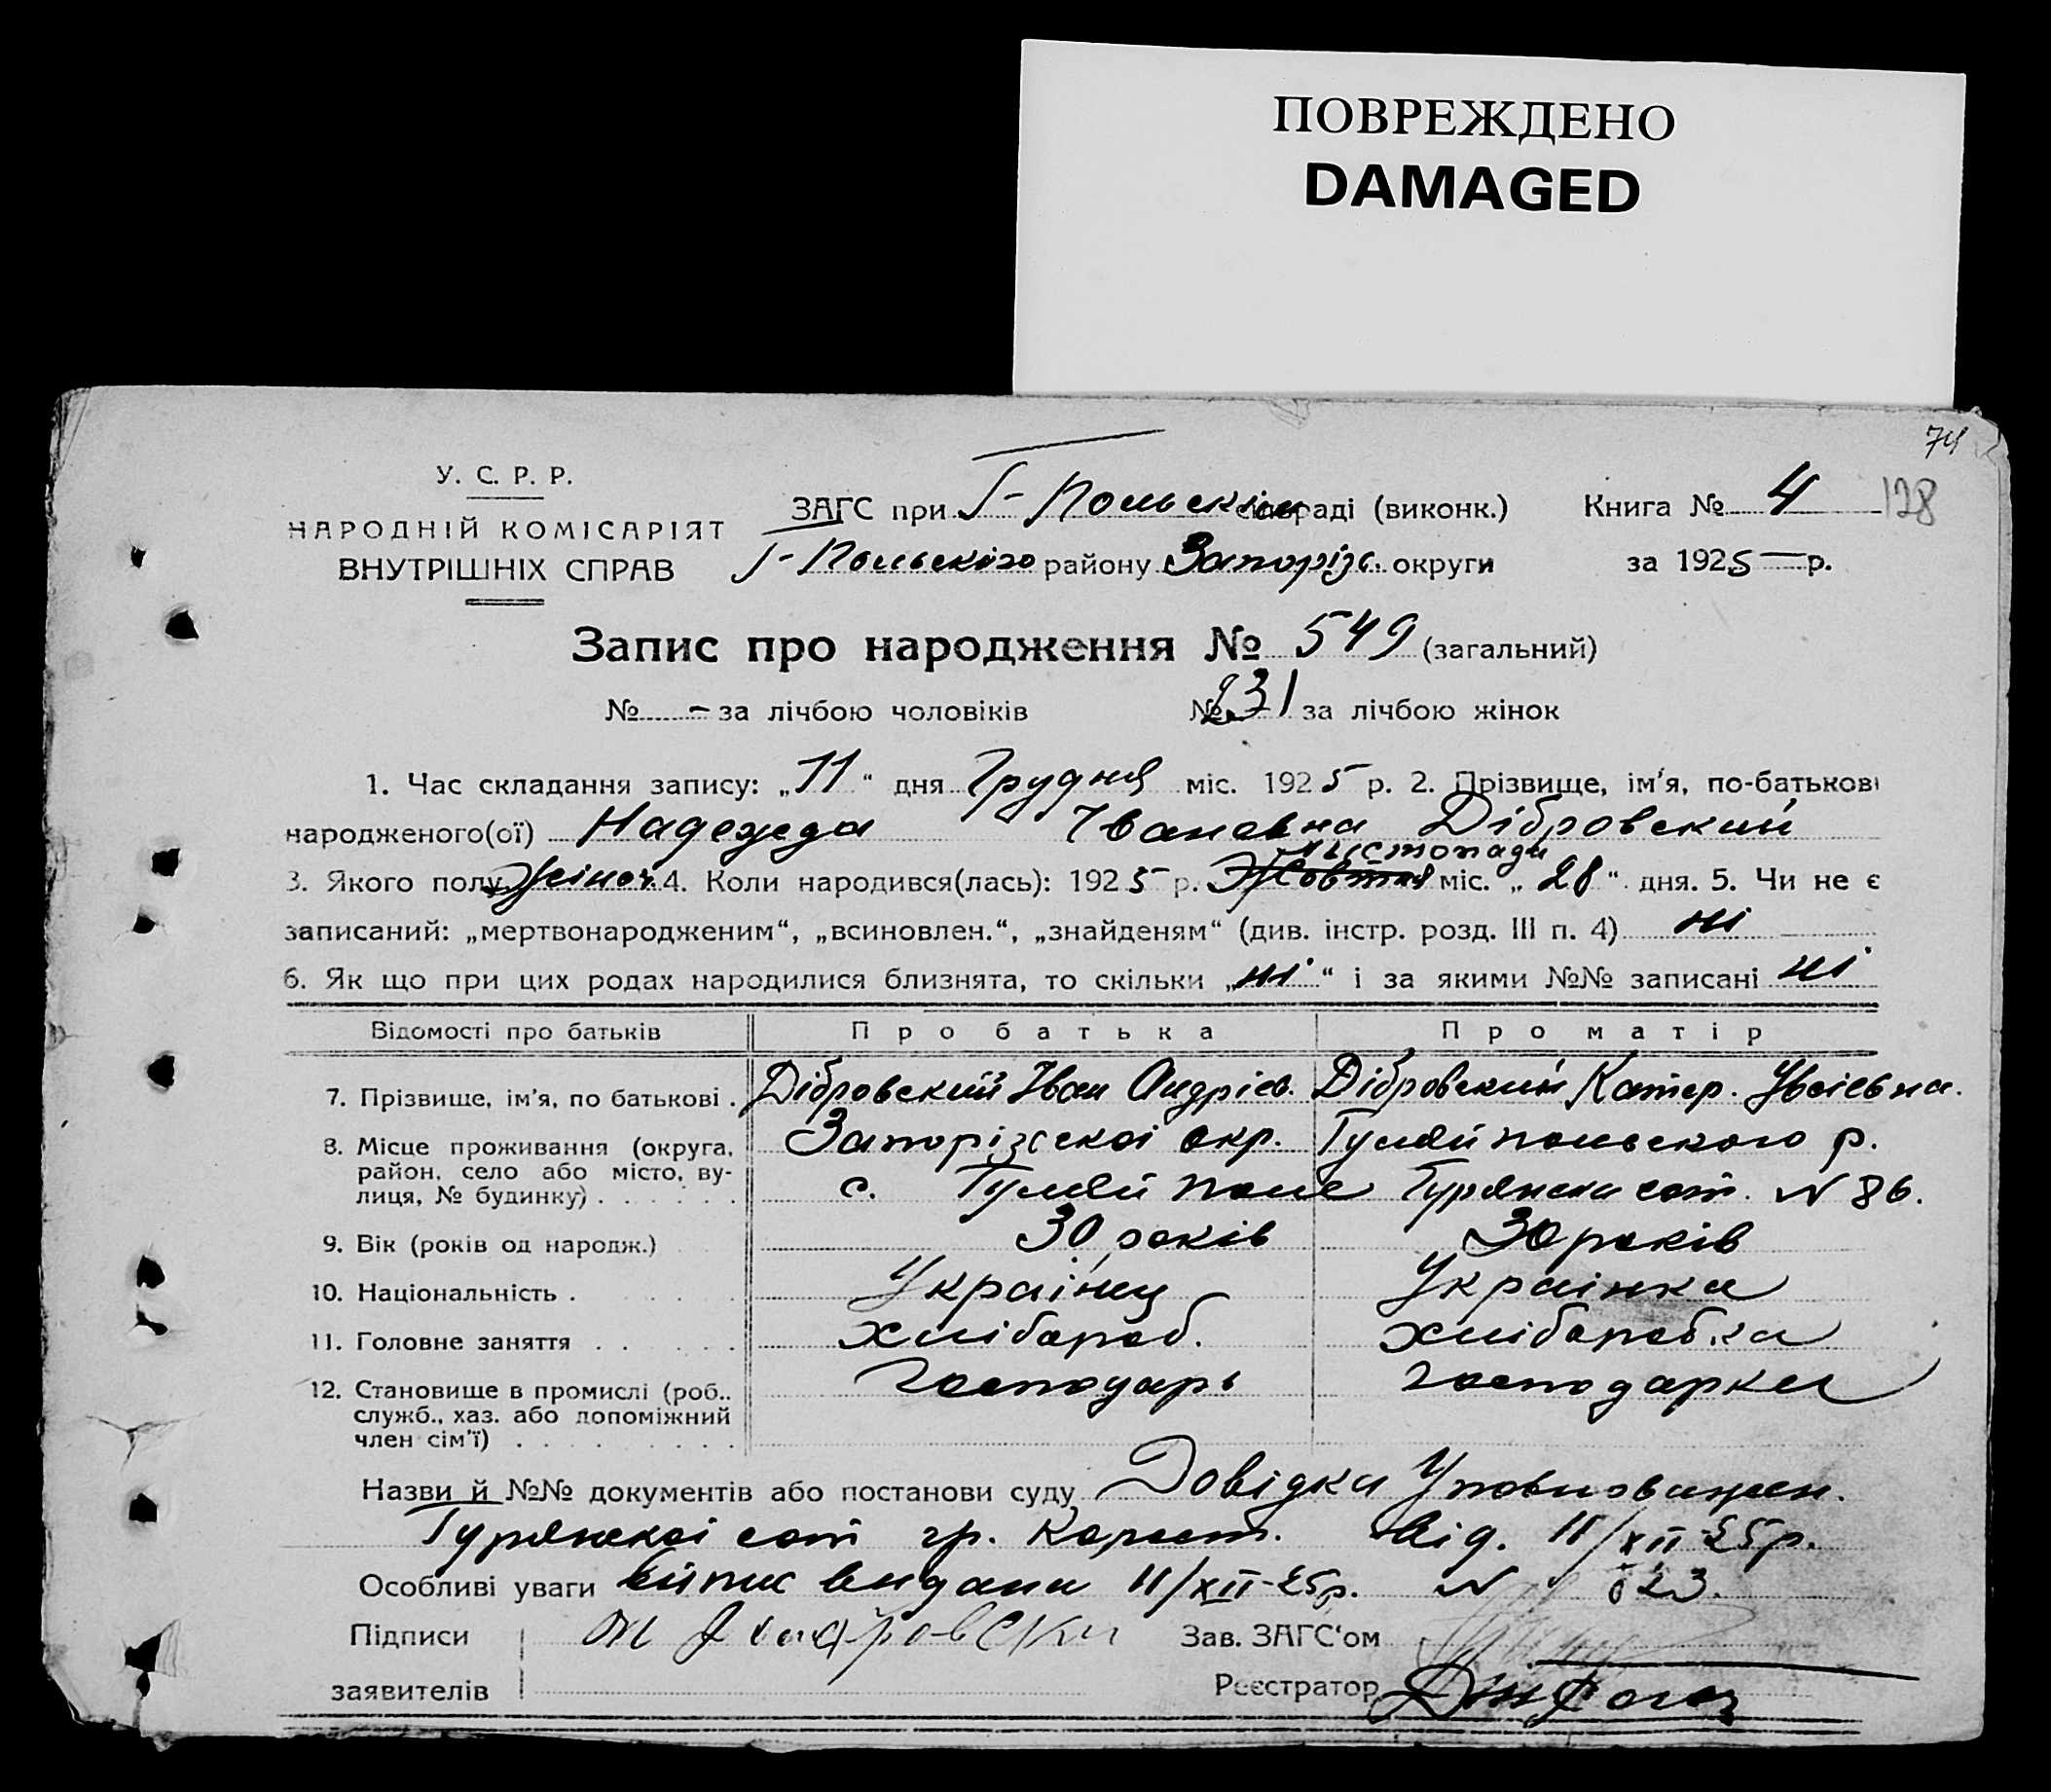 ПОВРЕЖДЕНО
DAMAGED
74
У. С. Р. Р.
НАРОДНІЙ КОМІСАРІЯТ
ВНУТРІШНІХ СПРАВ
ЗАГС при Г-Польскім раді (виконк.) Книга № 4 128
Г-Польского району Запоріз. округи за 1925 р.
Запис про народження № 549 (загальний)
№ - за лічбою чоловіків № 231 за лічбою жінок
1. Час складання запису: „11“ дня Грудня міс. 1925 р. 2. Прізвище, ім'я, по-батькові
народженого(ої) Надежда Івановна Дібровский
Листопада
3. Якого полу жіноч. 4. Коли народився(лась): 1925 р. Жовтня міс. „28“ дня. 5. Чи не є
записаний: „мертвонародженим“, „всиновлен.“, „знайденям“ (див. інстр. розд. III п. 4) ні
6. Як що при цих родах народилися близнята, то скільки „ні“ і за якими №№ записані ні
Відомості про батьків Про батька Про матір
7. Прізвище, ім'я, по батькові . Дібровский Іван Андріев. Дібровский Катер. Увсіевна.
8. Місце проживання (округа, район, село або місто, вулиця, № будинку) . Запорізскоі окр. Гуляйпольского р.
с. Гуляй Поле Гурянска сот. N 86.
9. Вік (років од народж.) 30 років 30 років
10. Національність . Украінец Украінка
11. Головне заняття . . хлібороб. хлібаробка
12. Становище в промислі (роб., служб., хаз. або допоміжний член сім'ї) . господарь господарка
Назви й №№ документів або постанови суду Довідка Уповноважен.
Гурянскоі сот гр. від. 11/XII-25р.
Особливі уваги Випис видана 11/XII-25р. N 623.
Підписи Зав. ЗАГС'ом
заявителів Реєстратор